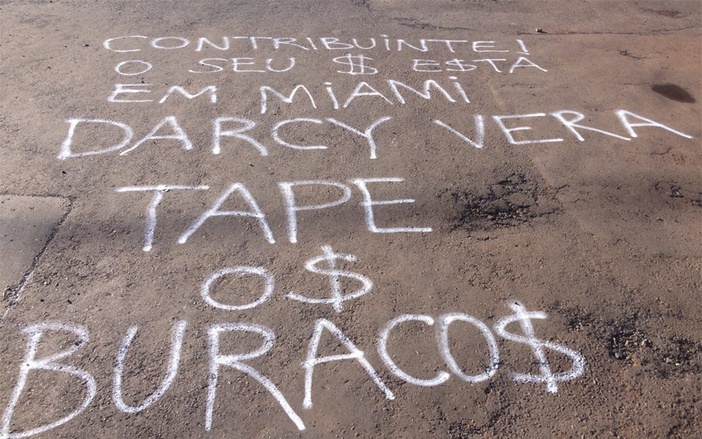 CONTRIBUINTE!
O SEU $ E$TÁ
EM MIAMI
DARCY VERA
TAPE
O$
BURACO$